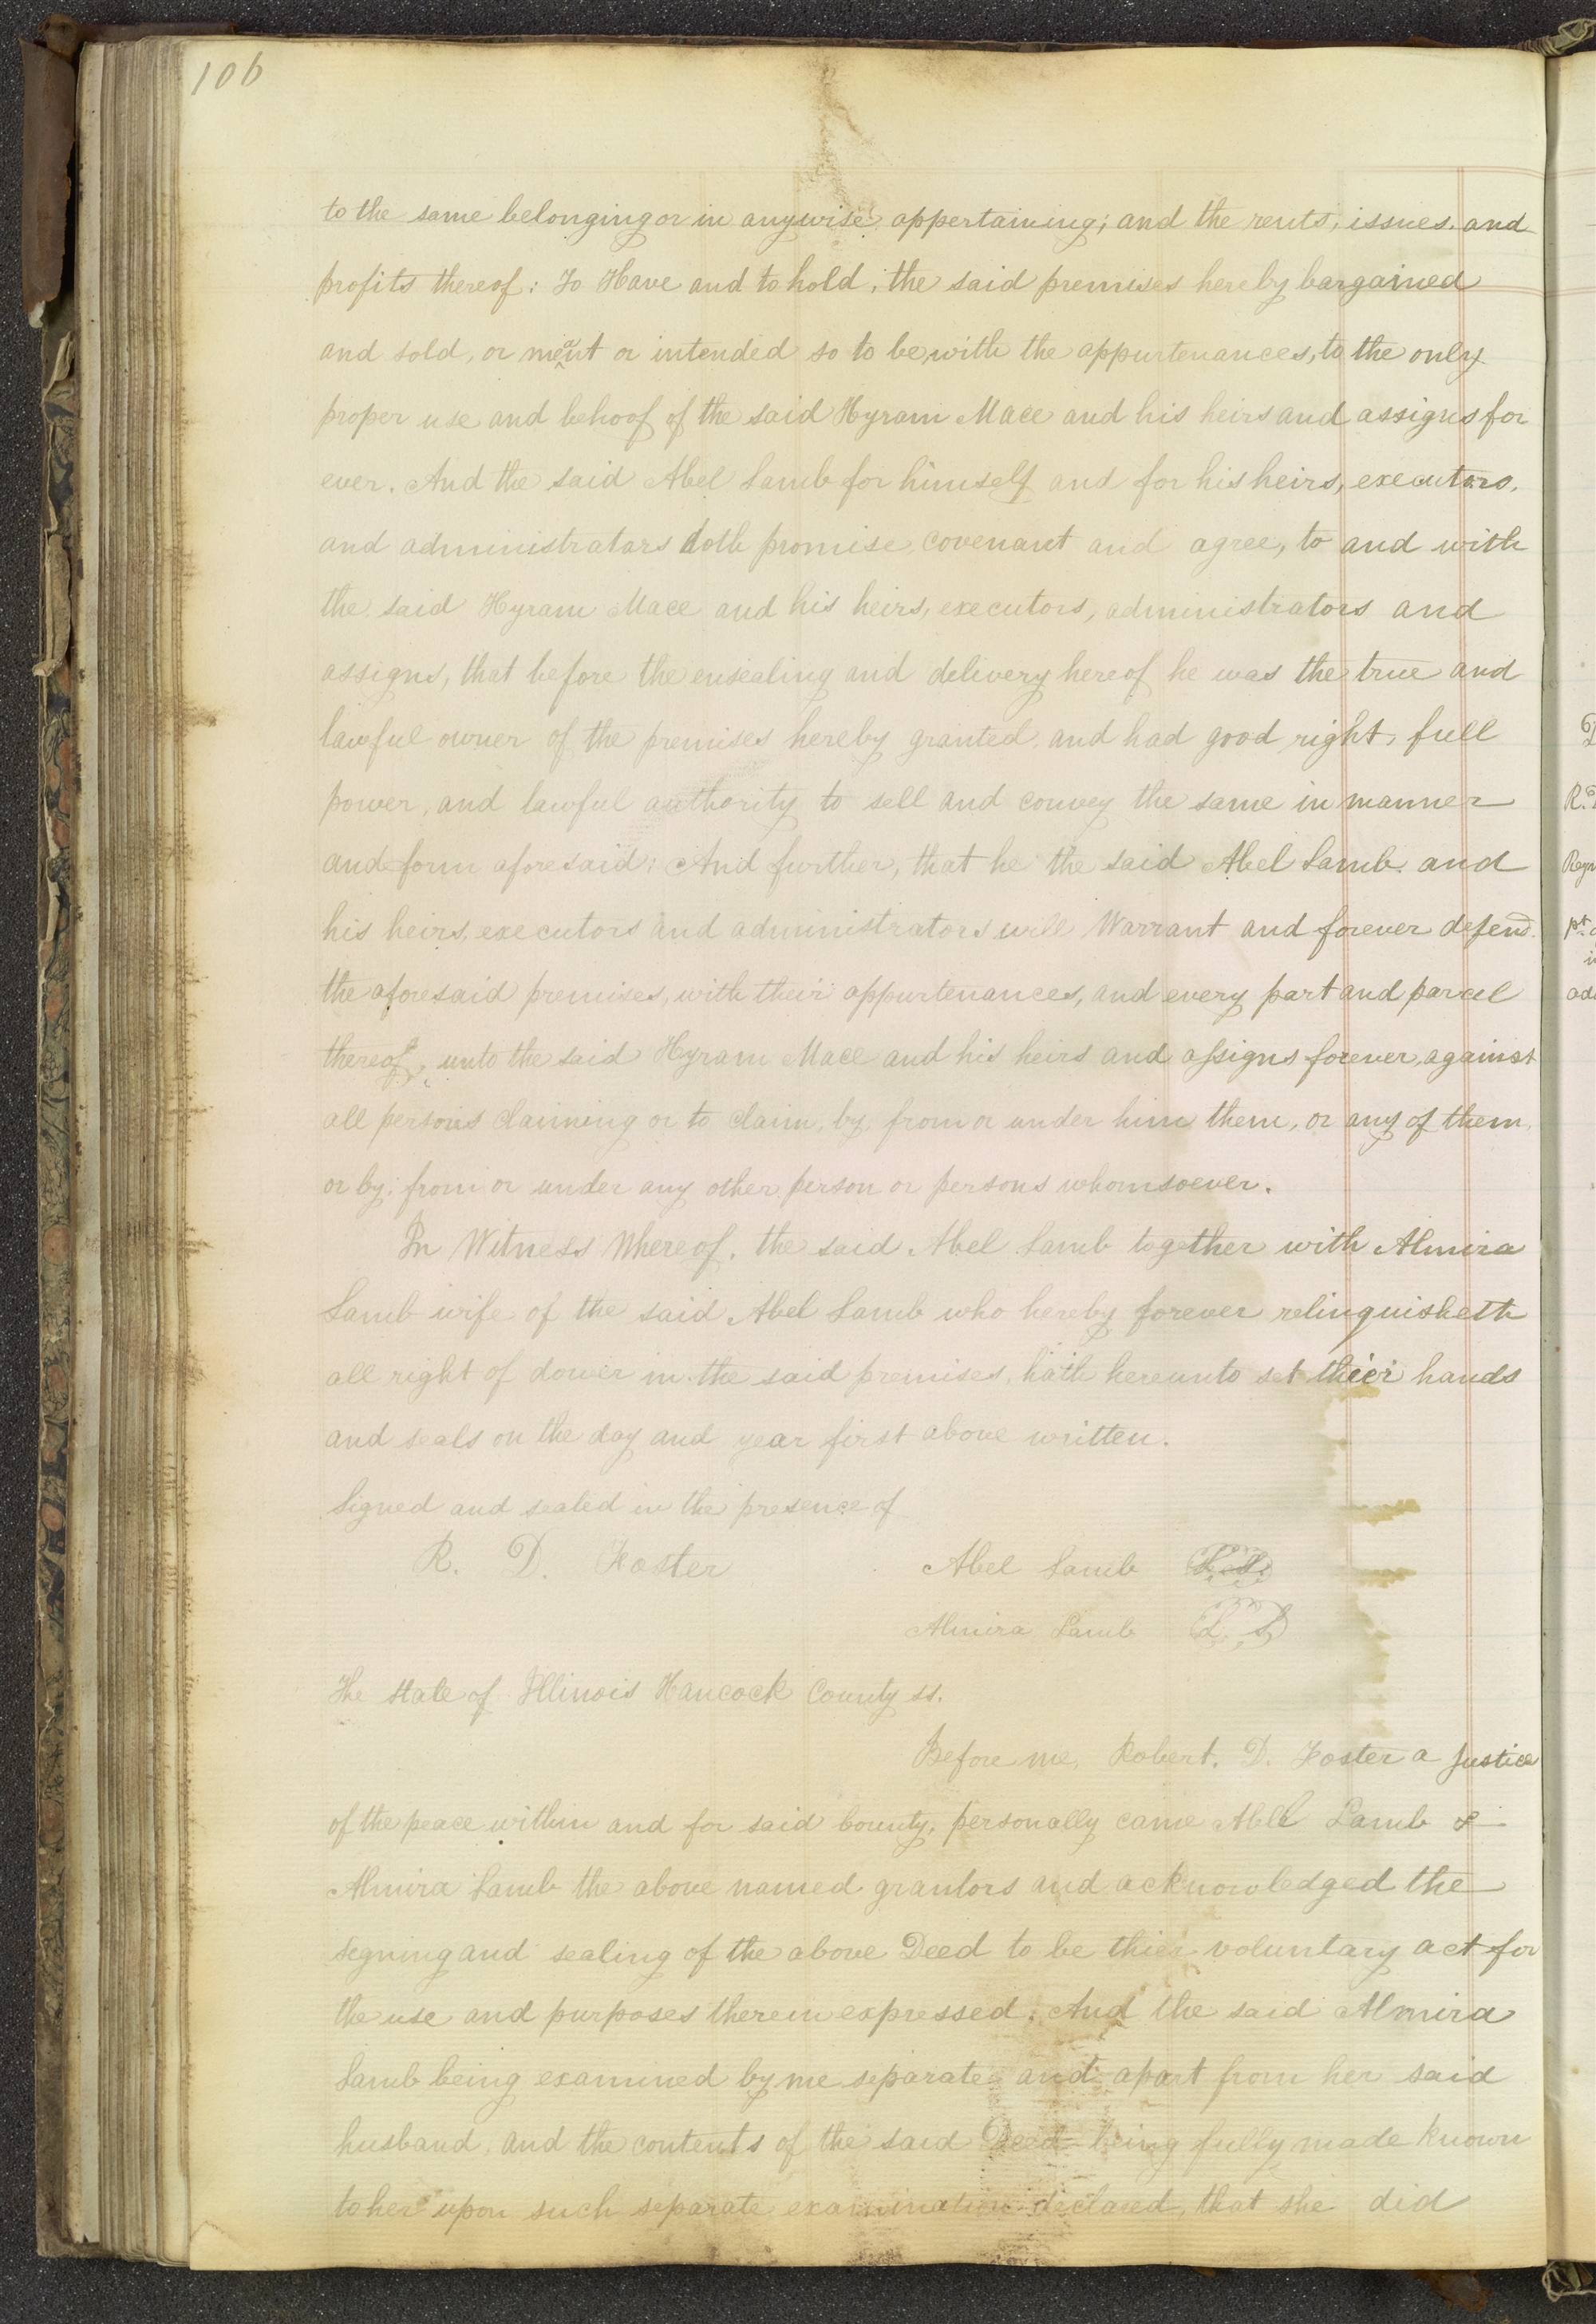 106
to the same belonging or in anywise appertaining; and the rents, issues. and
profits thereof: To Have and to hold, the said premises hereby bargained
and sold, or meant or intended so to be, with the appurtenances, to the only
proper use and behoof of the said Hyram Mace and his heirs and assigns for
ever. And the said Abel Lamb for himself and for his heirs, executors,
and administrators doth promise, covenant and agree, to and with
the said Hyram Mace and his heirs, executors, administrators and
assigns, that before the ensealing and delivery hereof he was the true and
lawful owner of the premises hereby granted, and had good right, full
power, and lawful authority to sell and convey the same in manner
and form aforesaid: And further, that he the said Abel Lamb. and
his heirs, executors and administrators will Warrant and forever defend.
the aforesaid premises, with their appurtenances, and every part and parcel
thereof, unto the said Hyram Mace and his heirs and assigns forever, against
all persons claiming or to claim, by, from or under him them, or any of them,
or by, from or under any other person or persons whomsoever.
In Witness Whereof, the said Abel Lamb together with Almira
Lamb wife of the said Abel Lamb who hereby forever relinquisheth
all right of dower in the said premises, hath hereunto set thier hands
and seals on the day and year first above written.
Signed and sealed in the presence of
R. D. Foster Abel Lamb L.S.
Almira Lamb L. S.
The state of Illinois Hancock County ss.
Before me, Robert. D. Foster a Justice
of the peace within and for said County, personally came Abel Lamb &
Almira Lamb the above named grantors and acknowledged the
segning and sealing of the above Deed to be thier voluntary act for
the use and purposes therein expressed. And the said Almira
Lamb being examined by me separate and apart from her said
husband, and the contents of the said Deed being fully made known
to her upon such separate examination declared, that she did